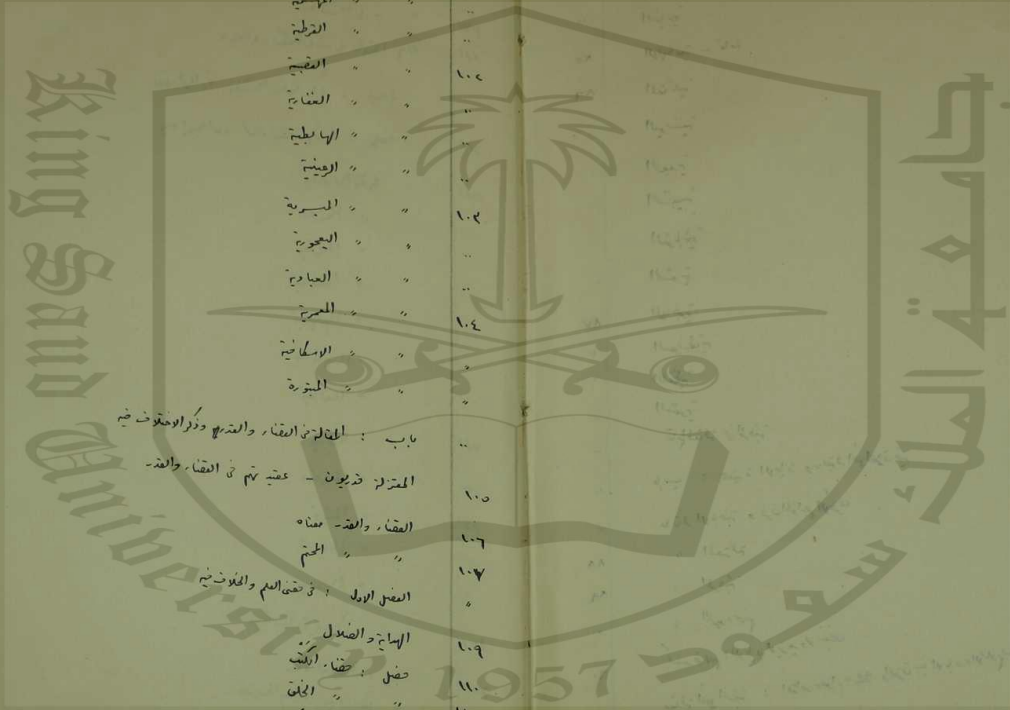 " " القرطية ..
" " العقبية ١٠٢
" " الغفارية ..
" " الهابطية ..
" " الرعينية ..
" " الميسرية ١٠٣
" " اليعجورية ..
" " العبادية ..
" " المعمرية ١٠٤
" " الاسكافية "
" " المبتورة "
باب : المقالة فى القضاء والقدر وذكر الاختلاف فيه ..
المعتزلة قدريون - عقيدتهم فى القضاء والقدر ١٠٥
القضاء والقدر معناه ١٠٦
" " المحتم ١٠٧
الفصل الاول : فى العلم والخلاف فيه "
الهداية والضلال ١٠٩
فصل : قضاء الكتب ١١٠
" " الخلق
King Saud University
1957
جامعة الملك سعود